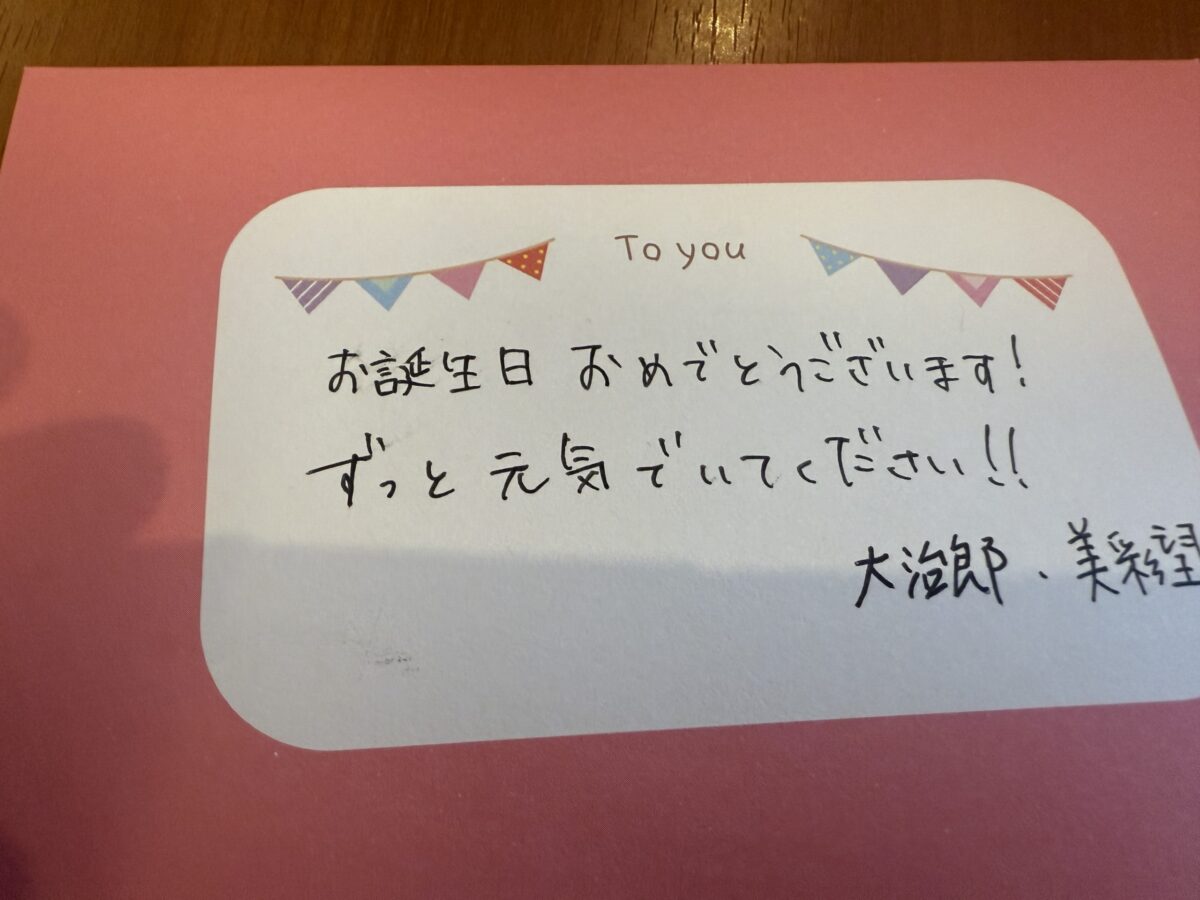 To you
お誕生日 おめでとうございます!
ずっと 元気でいてください!!
大治郎・美彩望